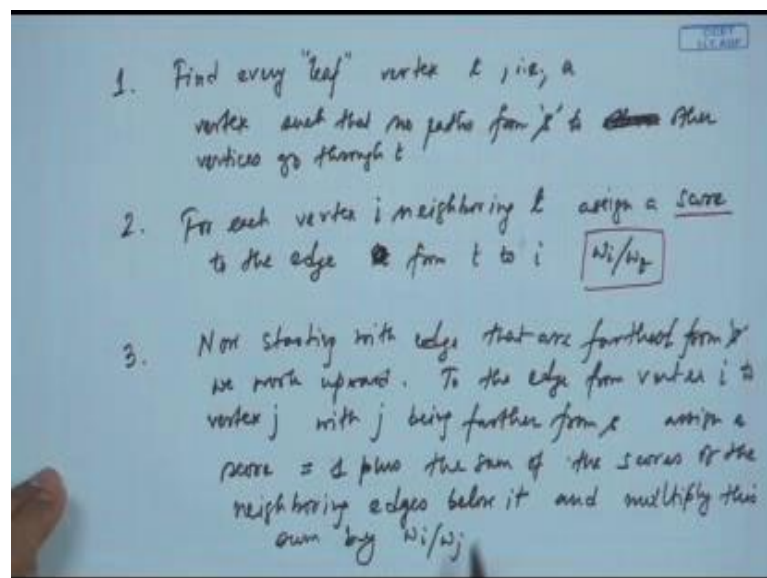 1. Find every "leaf" vertex t, i.e, a
vertex such that no paths from 's' to other
vertices go through t
2. For each vertex i neighboring t assign a score
to the edge from t to i wi/wt
3. Now starting with edge that are farthest from 's'
we work upward. To the edge from vertex i to
vertex j with j being further from s assign a
score = 1 plus the sum of the scores of the
neighboring edges below it and multiply this
sum by wi/wj